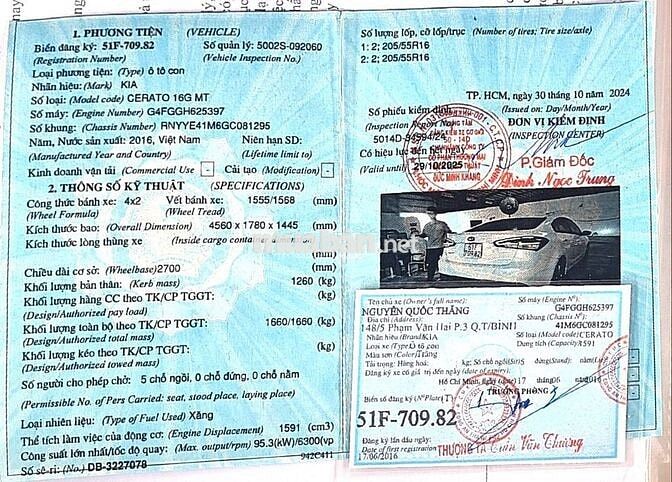 1. PHƯƠNG TIỆN (VEHICLE)
Biển đăng ký: 51F-709.82 Số quản lý: 5002S-092060
(Registration Number) (Vehicle Inspection No.)
Loại phương tiện: (Type) ô tô con
Nhãn hiệu: (Mark) KIA
Số loại: (Model code) CERATO 16G MT
Số máy: (Engine Number) G4FGGH625397
Số khung: (Chassis Number) RNYYE41M6GC081295
Năm, Nước sản xuất: 2016, Việt Nam Niên hạn SD:
(Manufactured Year and Country) (Lifetime limit to)
Kinh doanh vận tải (Commercial Use) - Cải tạo (Modification) -
2. THÔNG SỐ KỸ THUẬT (SPECIFICATIONS)
Công thức bánh xe: 4x2 Vết bánh xe: 1555/1568 (mm)
(Wheel Formula) (Wheel Tread)
Kích thước bao: (Overall Dimension) 4560 x 1780 x 1445 (mm)
Kích thước lòng thùng xe (Inside cargo container dimension)
(mm)
Chiều dài cơ sở: (Wheelbase) 2700 (mm)
Khối lượng bản thân: (Kerb mass) 1260 (kg)
Khối lượng hàng CC theo TK/CP TGGT: (kg)
(Design/Authorized pay load)
Khối lượng toàn bộ theo TK/CP TGGT: 1660/1660 (kg)
(Design/Authorized total mass)
Khối lượng kéo theo TK/CP TGGT: (kg)
(Design/Authorized towed mass)
Số người cho phép chở: 5 chỗ ngồi, 0 chỗ đứng, 0 chỗ nằm
(Permissible No. of Pers Carried: seat, stood place, laying place)
Loại nhiên liệu: (Type of Fuel Used) Xăng
Thể tích làm việc của động cơ: (Engine Displacement) 1591 (cm3)
Công suất lớn nhất/tốc độ quay: (Max. output/rpm) 95.3(kW)/6300(vp
Số sê-ri: (No.) DB-3227078 942C411
Số lượng lốp, cỡ lốp/trục (Number of tires; Tire size/axle)
1: 2; 205/55R16
2: 2; 205/55R16
TP. HCM, ngày 30 tháng 10 năm 2024
(Issued on: Day/Month/Year)
Số phiếu kiểm định
(Inspection Report No)
ĐƠN VỊ KIỂM ĐỊNH
(INSPECTION CENTER)
Có hiệu lực đến hết ngày
(Valid until) 29/10/2025
P.Giám Đốc
Đinh Ngọc Trung
Tên chủ xe (Owner's full name):
NGUYỄN QUỐC THẮNG
Địa chỉ (Address):
148/5 Phạm Văn Hai P.3 Q.T/BÌNH
Nhãn hiệu (Brand) KIA
Màu sơn (Color) Trắng
Số máy (Engine Nº):
G4FGGH625397
Số khung (Chassis Nº)
41M6GC081295
Số loại (Model code) CERATO
Dung tích (Capacity) 1591
Tải trọng: Hàng hoá: kg; Số chỗ ngồi (Sit) 5
Hồ Chí Minh, ngày 17 tháng 06 năm 2016
TRƯỞNG PHÒNG
Biển số đăng ký (Nº Plate)
51F-709.82
Đăng ký lần đầu ngày
Date of first registration
17/06/2016
THƯỢNG TÁ Trần Văn Thương